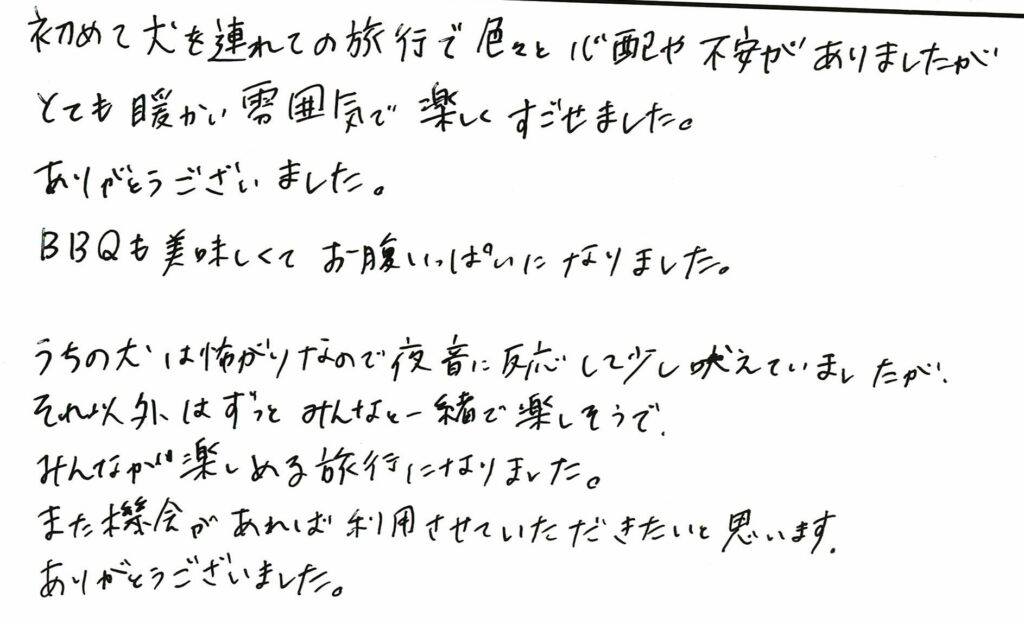 初めて犬を連れての旅行で色々と心配や不安がありましたが
とても暖かい雰囲気で楽しくすごせました。
ありがとうございました。
BBQも美味しくてお腹いっぱいになりました。
うちの犬は怖がりなので夜音に反応して少し吠えていましたが、
それ以外はずっとみんなと一緒で楽しそうで、
みんなが楽しめる旅行になりました。
また機会があれば利用させていただきたいと思います。
ありがとうございました。